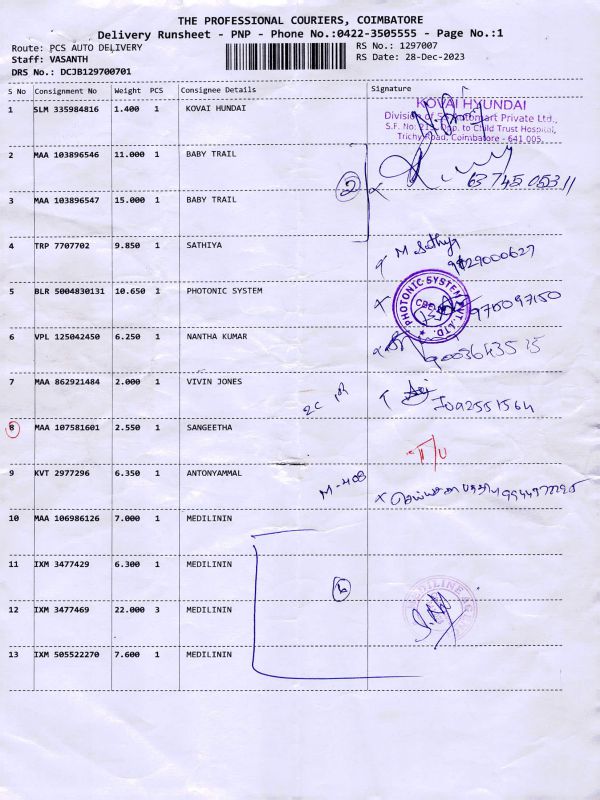 THE PROFESSIONAL COURIERS, COIMBATORE
Delivery Runsheet - PNP - Phone No.:0422-3505555 - Page No.:1
Route: PCS AUTO DELIVERY
RS No.: 1297007
Staff: VASANTH
RS Date: 28-Dec-2023
DRS No.: DCJB129700701
S No Consignment No Weight PCS Consignee Details Signature
1 SLM 335984816 1.400 1 KOVAI HUNDAI
KOVAI HYUNDAI
Division of Automart Private Ltd.,
S.F. No: Opp. to Child Trust Hospital,
Trichy Road, Coimbatore - 641 005.
2 MAA 103896546 11.000 1 BABY TRAIL
2
63 745 05311
3 MAA 103896547 15.000 1 BABY TRAIL
4 TRP 7707702 9.850 1 SATHIYA
M Sathya
5 BLR 5004830131 10.650 1 PHOTONIC SYSTEM
PHOTONIC SYSTEM PVT. LTD.
CBE
6 VPL 125042450 6.250 1 NANTHA KUMAR
7 MAA 862921484 2.000 1 VIVIN JONES
7092551564
8 MAA 107581601 2.550 1 SANGEETHA
9 KVT 2977296 6.350 1 ANTONYAMMAL
M-408
10 MAA 106986126 7.000 1 MEDILININ
11 IXM 3477429 6.300 1 MEDILININ
12 IXM 3477469 22.000 3 MEDILININ
13 IXM 505522270 7.600 1 MEDILININ